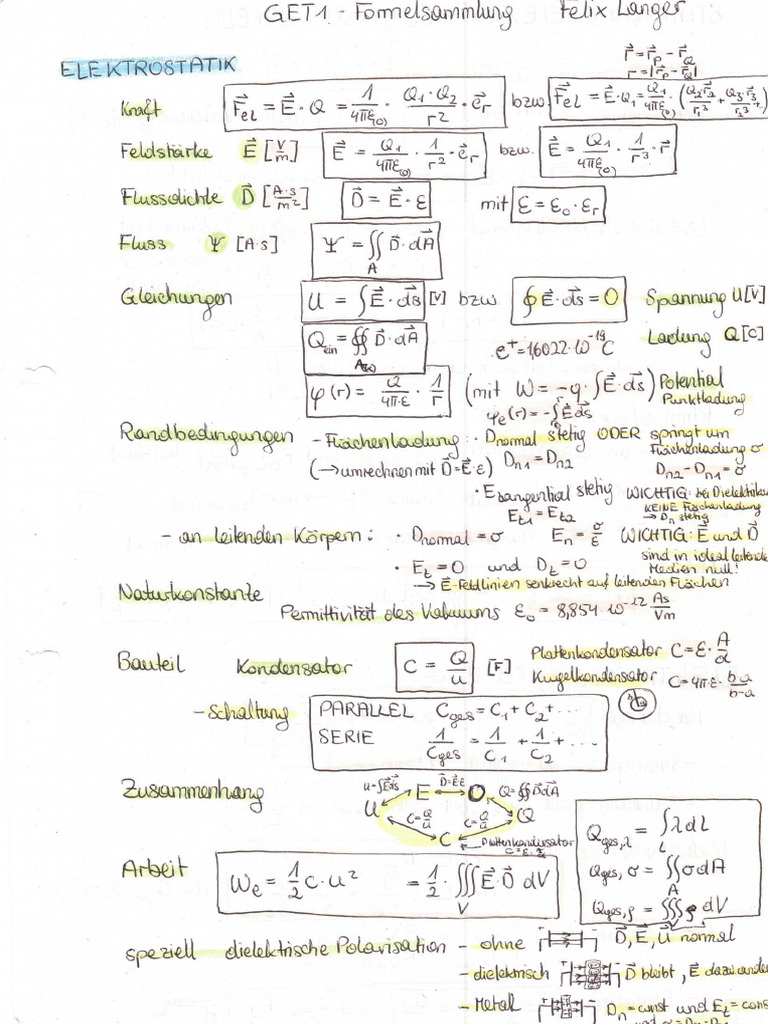 GET1 - Formelsammlung Felix Langer
r⃗ = r⃗_P - r⃗_Q
r = |r⃗_P - r⃗_Q|
ELEKTROSTATIK
Kraft F⃗_el = E⃗ · Q = 1/(4πε_(0)) · (Q₁·Q₂)/r² · e⃗_r bzw. F⃗_el = E⃗·Q₁ = Q₁/(4πε_(0)) · (Q₂·r⃗₂/r₂³ + Q₃·r⃗₃/r₃³ +
Feldstärke E⃗ [V/m] E⃗ = Q₁/(4πε_(0)) · 1/r² · e⃗_r bzw. E⃗ = Q₁/(4πε_(0)) · 1/r³ · r⃗
Flussdichte D⃗ [A·s/m²] D⃗ = E⃗ · ε mit ε = ε₀ · ε_r
Fluss Ψ [A·s] Ψ = ∬_A D⃗ · dA⃗
Gleichungen U = ∫ E⃗ · ds⃗ [V] bzw. ∮ E⃗ · ds⃗ = 0 Spannung U [V]
Q_ein = ∯ D⃗ · dA⃗ e⁺ = 1,6022·10⁻¹⁹ C Ladung Q [C]
φ(r) = Q/(4π·ε) · 1/r (mit W = -q · ∫ E⃗ · ds⃗) Potential
Punktladung
φ_e(r) = -∫ E⃗ ds⃗
Randbedingungen - Flächenladung: · D_normal stetig ODER springt um
Flächenladung σ
(→ umrechnen mit D⃗ = E⃗·ε) D_n1 = D_n2 D_n2 - D_n1 = σ
· E_tangential stetig WICHTIG: bei Dielektrika
KEINE Flächenladung
E_t1 = E_t2 → D_n stetig
- an leitenden Körpern: · D_normal = σ E_n = σ/ε WICHTIG: E⃗ und D⃗
sind in ideal leitende
· E_t = 0 und D_t = 0 Medien null!
→ E⃗-Feldlinien senkrecht auf leitenden Flächen
Naturkonstante
Permittivität des Vakuums ε₀ = 8,854·10⁻¹² As/Vm
Bauteil Kondensator C = Q/U [F] Plattenkondensator C = ε · A/d
Kugelkondensator C = 4π·ε · b·a/(b-a)
- Schaltung PARALLEL C_ges = C₁ + C₂ + ...
SERIE 1/C_ges = 1/C₁ + 1/C₂ + ...
Zusammenhang U = ∫E⃗ds⃗ E D⃗=E⃗·ε D Q = ∯D⃗dA⃗
U C=Q/U C=Q/U Q
C Plattenkondensator
Q_ges,λ = ∫_L λ dL
Arbeit W_e = 1/2 C · U² = 1/2 · ∭_V E⃗ · D⃗ dV
Q_ges,σ = ∬_A σ dA
Q_ges,ρ = ∭_V ρ dV
speziell dielektrische Polarisation - ohne D⃗, E⃗, U⃗ normal
- dielektrisch D⃗ bleibt, E⃗
- Metall D_n = const und E_t = cons